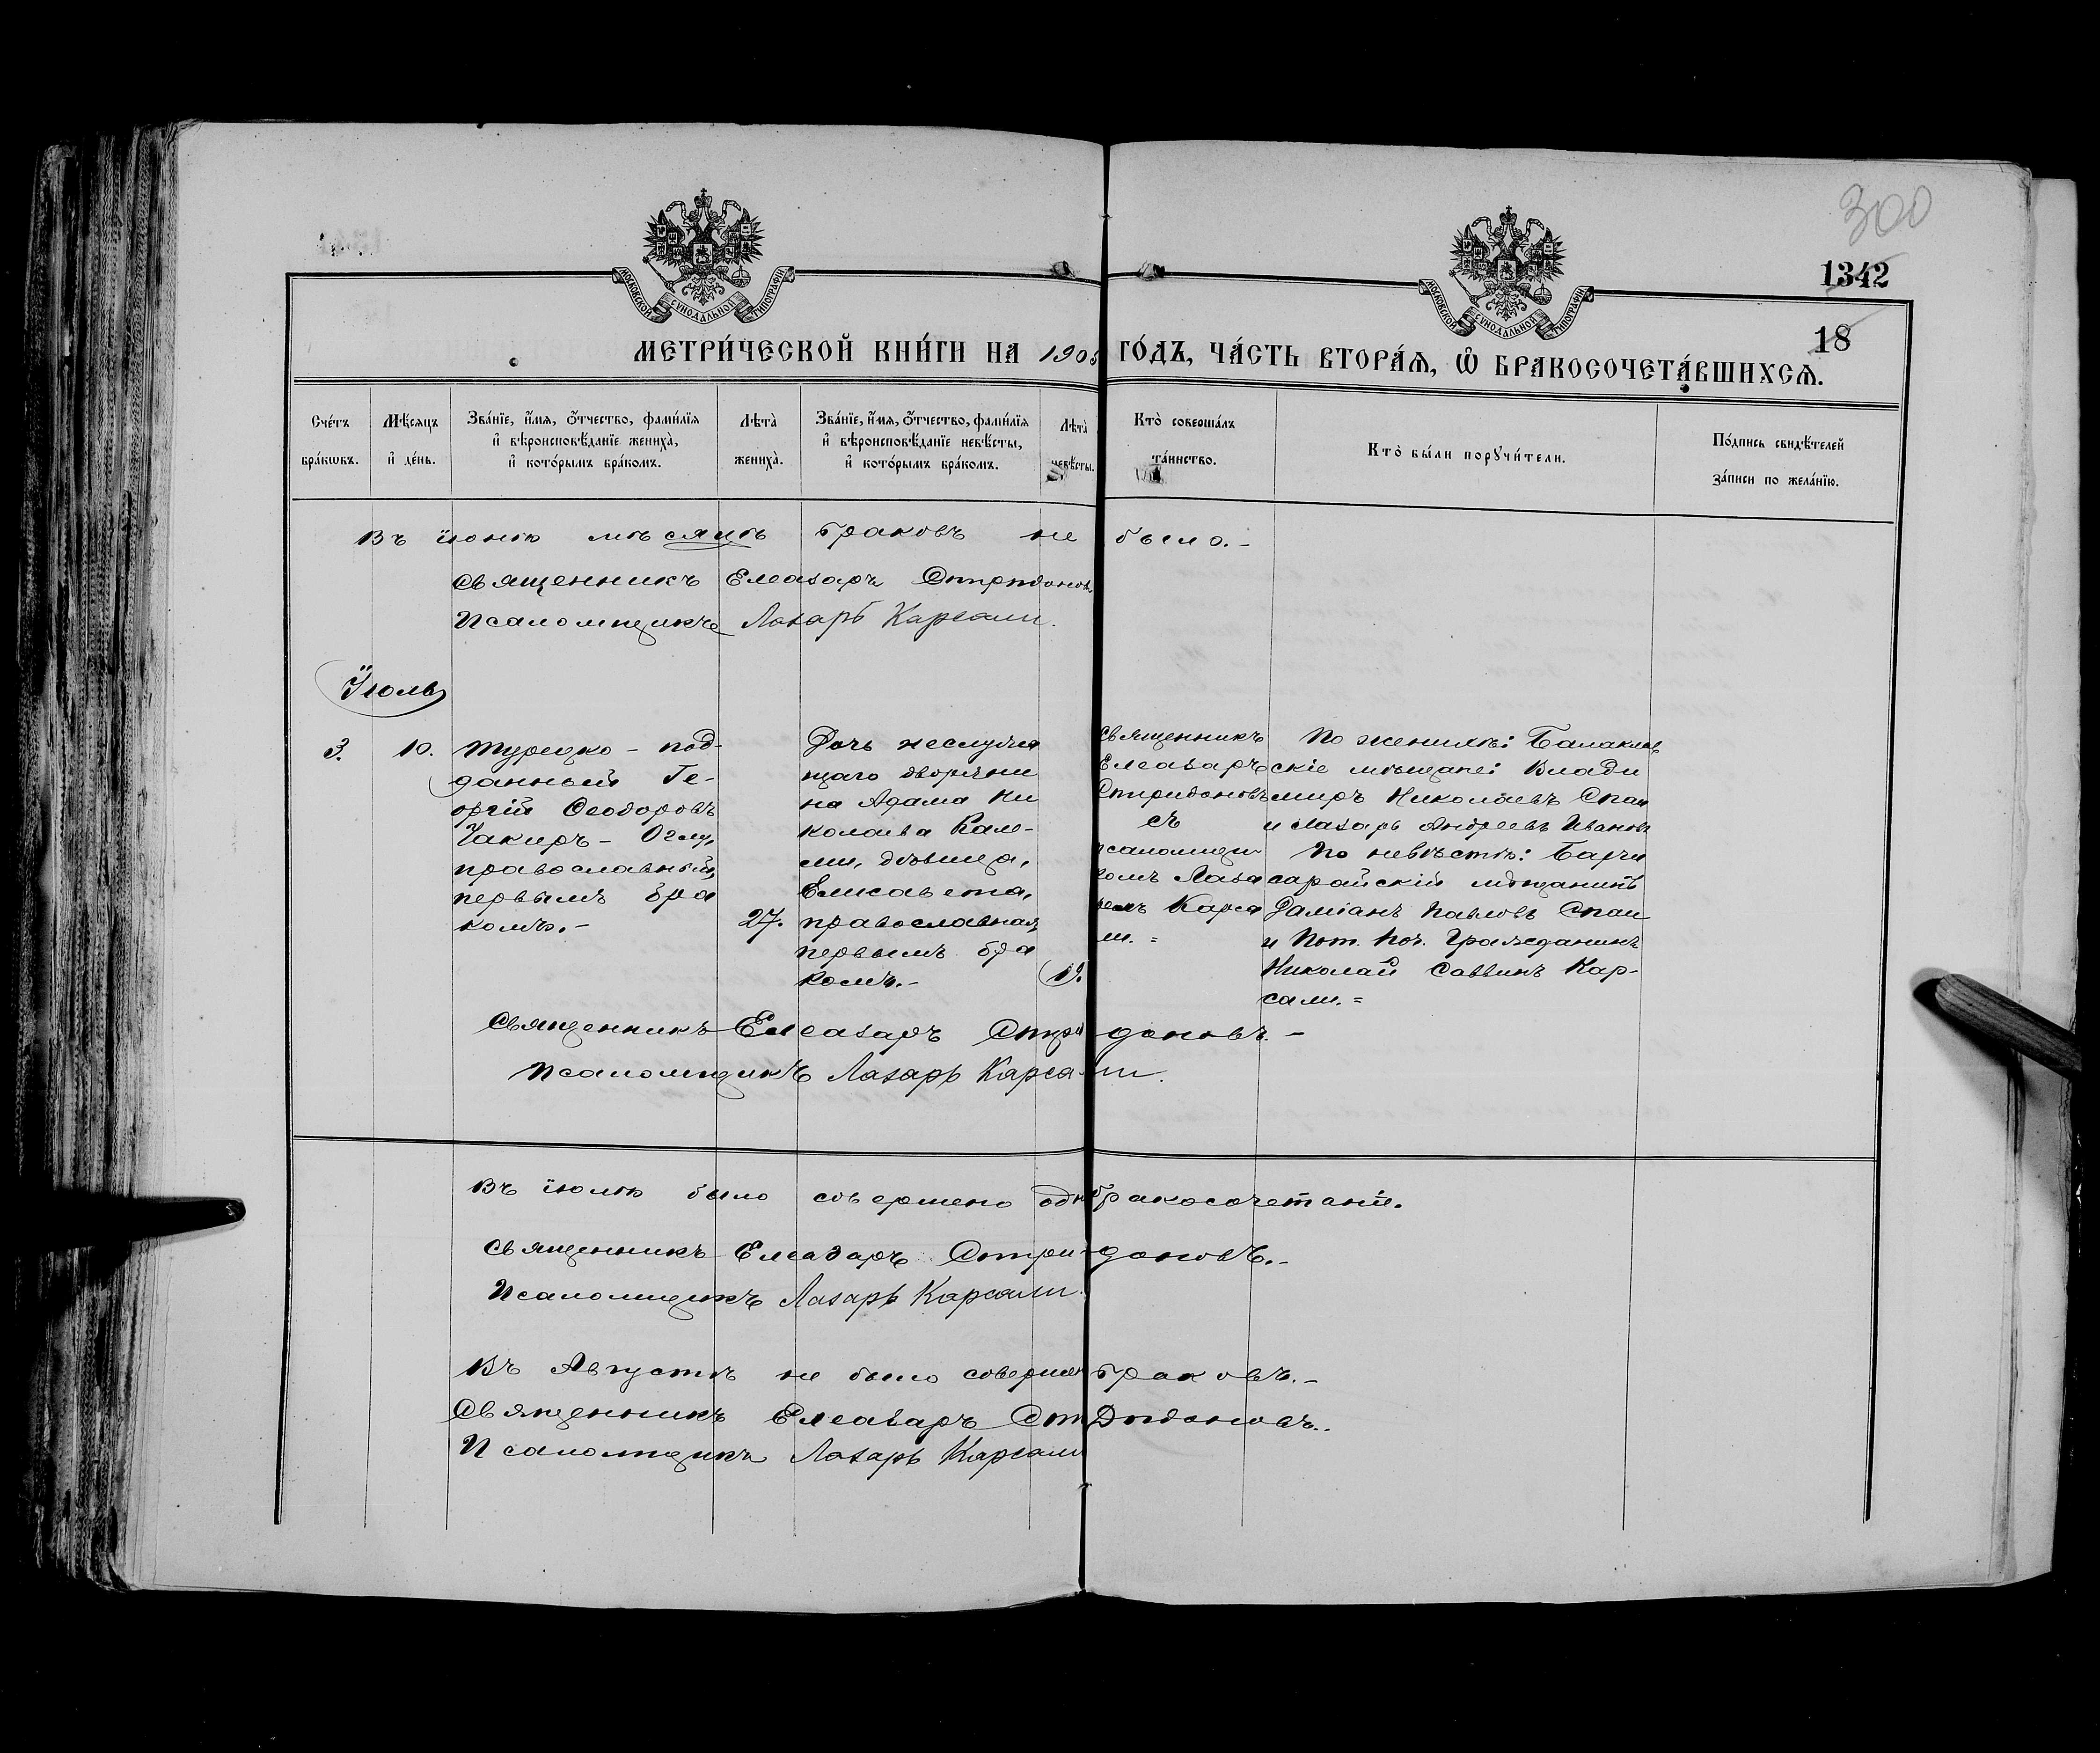 300
1342
18
МОСКОВСКОЙ СѴНОДАЛЬНОЙ ТИПОГРАФІИ
МОСКОВСКОЙ СѴНОДАЛЬНОЙ ТИПОГРАФІИ
МЕТРИ́ЧЕСКОЙ КНИ́ГИ НА 190 ГО́ДЪ, ЧА́СТЬ ВТОРА́Я, Ѡ҆ БРАКОСОЧЕТА́ВШИХСЯ.
Сче́тъ бра́кѡвъ.
Мѣ́сяцъ и҆ де́нь.
Зва́нїе, и҆́мя, ѻ҆́тчество, фами́лїя и҆ вѣроисповѣ́данїе жениха̀, и҆ кото́рымъ бра́комъ.
Лѣта̀ жениха̀.
Зва́нїе, и҆́мя, ѻ҆́тчество, фами́лїя и҆ вѣроисповѣ́данїе невѣ́сты, и҆ кото́рымъ бра́комъ.
Лѣта̀ невѣ́сты.
Кто̀ соверша́лъ та́инство.
Кто̀ бы́ли порꙋчи́тели.
По́дпись свидѣ́телей за́писи по жела́нїю.
Въ іюнѣ мѣсяцѣ браковъ не было.-
Священникъ Елеазаръ Спиридоновъ
Псаломщикъ Лазарь Карсали.
Іюль
3. 10.
Турецко-под-
данный Ге-
оргій Ѳеодоровъ
Чакиръ-Оглу,
православный,
первымъ бра
комъ.-
27.
Дочь неслужа
щаго дворяни
на Адама Ни
колаева Кале-
ми, дѣвица,
Елисавета,
православная,
первымъ бра
комъ.-
19.
Священникъ
Елеазаръ
Спиридоновъ
съ
псаломщи
комъ Лаза
ремъ Карса
ли.=
По женихѣ: Балаклав
скіе мѣщане: Влади
миръ Николаевъ Спаи
и Лазарь Андреевъ Ивановъ
По невѣстѣ: Бахчи
сарайскій мѣщанинъ
Даміанъ Павловъ Спаи
и Пот. Поч. Гражданинъ
Николай Саввинъ Кар-
сали.=
Священникъ Елеазаръ Спиридоновъ.-
Псаломщикъ Лазарь Карсали.
Въ іюлѣ было совершено одн бракосочетаніе.
Священникъ Елеазаръ Спиридоновъ.-
Псаломщикъ Лазарь Карсали.
Въ Августѣ не было совершен браковъ.-
Священникъ Елеазаръ Спиридоновъ..
Псаломщикъ Лазарь Карсали